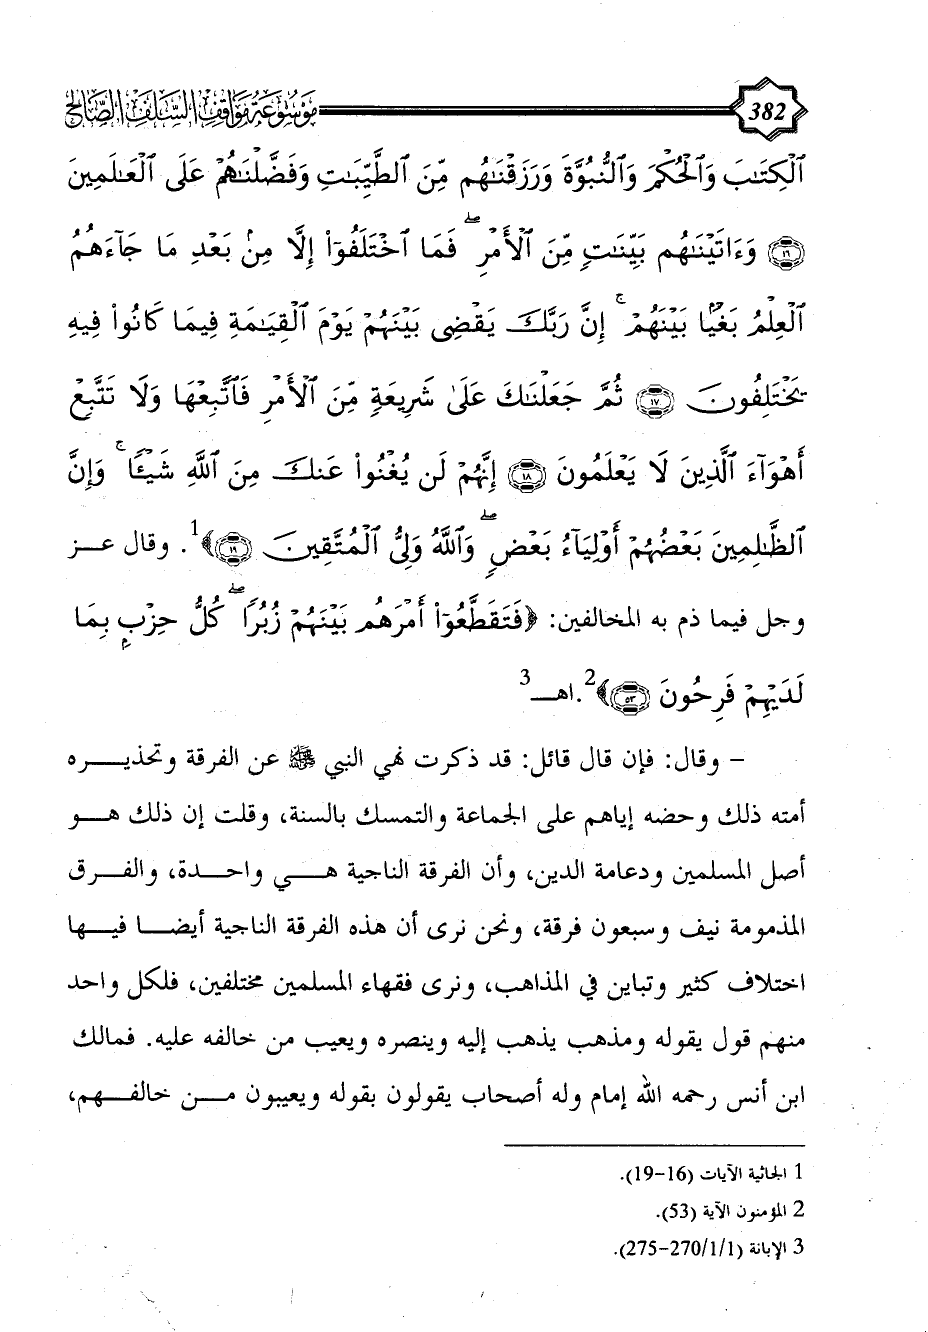 382 موسوعة مواقف السلف الصالح
ٱلْكِتَٰبَ وَٱلْحُكْمَ وَٱلنُّبُوَّةَ وَرَزَقْنَٰهُم مِّنَ ٱلطَّيِّبَٰتِ وَفَضَّلْنَٰهُمْ عَلَى ٱلْعَٰلَمِينَ
١٦ وَءَاتَيْنَٰهُم بَيِّنَٰتٍ مِّنَ ٱلْأَمْرِ ۖ فَمَا ٱخْتَلَفُوٓا۟ إِلَّا مِنۢ بَعْدِ مَا جَآءَهُمُ
ٱلْعِلْمُ بَغْيًۢا بَيْنَهُمْ ۚ إِنَّ رَبَّكَ يَقْضِى بَيْنَهُمْ يَوْمَ ٱلْقِيَٰمَةِ فِيمَا كَانُوا۟ فِيهِ
يَخْتَلِفُونَ ١٧ ثُمَّ جَعَلْنَٰكَ عَلَىٰ شَرِيعَةٍ مِّنَ ٱلْأَمْرِ فَٱتَّبِعْهَا وَلَا تَتَّبِعْ
أَهْوَآءَ ٱلَّذِينَ لَا يَعْلَمُونَ ١٨ إِنَّهُمْ لَن يُغْنُوا۟ عَنكَ مِنَ ٱللَّهِ شَيْـًٔا ۚ وَإِنَّ
ٱلظَّٰلِمِينَ بَعْضُهُمْ أَوْلِيَآءُ بَعْضٍ ۖ وَٱللَّهُ وَلِىُّ ٱلْمُتَّقِينَ ١٩﴾1. وقال عـز
وجل فيما ذم به المخالفين: ﴿فَتَقَطَّعُوٓا۟ أَمْرَهُم بَيْنَهُمْ زُبُرًا ۖ كُلُّ حِزْبٍۭ بِمَا
لَدَيْهِمْ فَرِحُونَ ٥٣﴾2.اهـ3
- وقال: فإن قال قائل: قد ذكرت نهي النبي ﷺ عن الفرقة وتحذيـــره
أمته ذلك وحضه إياهم على الجماعة والتمسك بالسنة، وقلت إن ذلك هـــو
أصل المسلمين ودعامة الدين، وأن الفرقة الناجية هـــي واحـــدة، والفـــرق
المذمومة نيف وسبعون فرقة، ونحن نرى أن هذه الفرقة الناجية أيضـــا فيـــها
اختلاف كثير وتباين في المذاهب، ونرى فقهاء المسلمين مختلفين، فلكل واحد
منهم قول يقوله ومذهب يذهب إليه وينصره ويعيب من خالفه عليه. فمالك
ابن أنس رحمه الله إمام وله أصحاب يقولون بقوله ويعيبون مـــن خالفـــهم،
1 الجاثية الآيات (16-19).
2 المؤمنون الآية (53).
3 الإبانة (1/1/270-275).